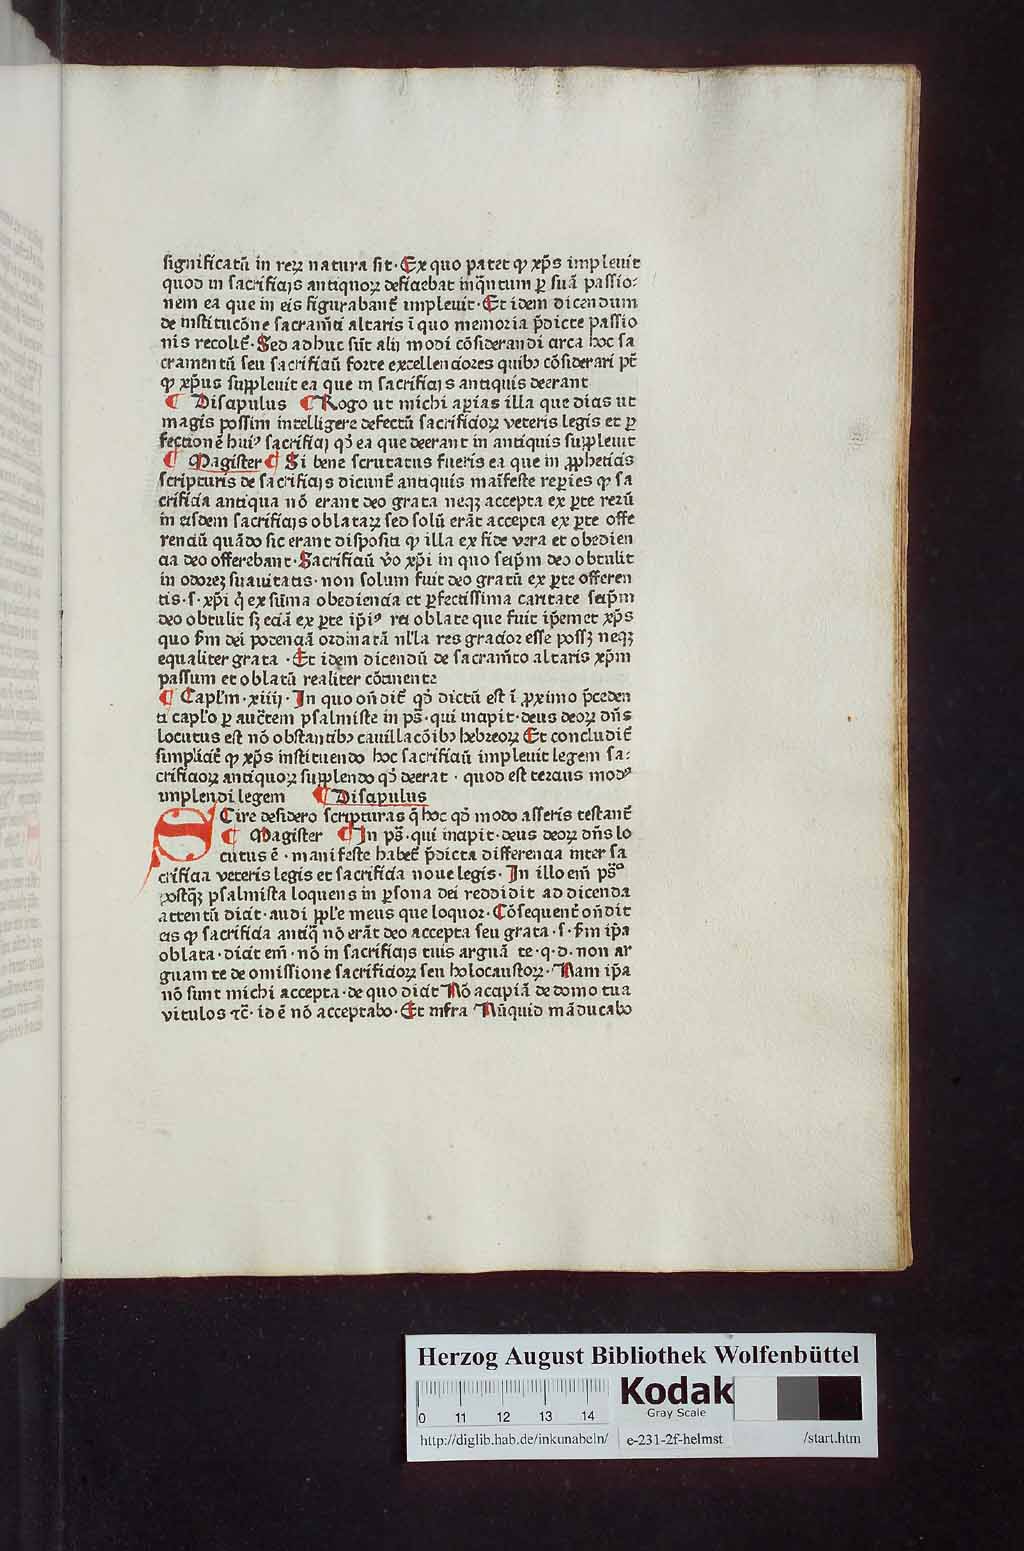 significatū in reꝝ natura sit· Ex quo patet ꝙ xp̄s impleuit
quod in sacrificijs antiquoꝝ deficiebat inq̄ntum ꝑ suā passio:
nem ea que in eis figurabant᷑ impleuit· Et idem dicendum
de institucōne sacram̄ti altaris ī quo memoria p̄dicte passio
nis recolit᷑· Sed adhuc sūt alij modi cōsiderandi circa hoc sa
cramentū seu sacrificiū forte excellenciores quibꝫ cōsiderari pt̄
ꝙ xp̄us suppleuit ea que in sacrificijs antiquis deerant
¶ Discipulus ¶ Rogo ut michi aꝑias illa que dicis ut
magis possim intelligere defectū sacrificioꝝ veteris legis et ꝑ
fectionē huiꝰ sacrificij qd̓ ea que deerant in antiquis suppleuit
¶ Magister ¶ Si bene scrutatus fueris ea que in ꝓpheticis
scripturis de sacrificijs dicunt᷑ antiquis maīfeste reꝑies ꝙ sa
crificia antiqua nō erant deo grata neqꝫ accepta ex ꝑte rerū
in eisdem sacrificijs oblataꝝ sed solū erāt accepta ex ꝑte offe
renciū quādo sic erant dispositi ꝙ illa ex fide vera et obedien
cia deo offerebant· Sacrificiū v̄o xp̄i in quo seip̄m deo obtulit
in odoreꝫ suauitatis· non solum fuit deo gratū ex ꝑte offeren
tis· s· xp̄i q̄ ex sūma obediencia et ꝑfectissima caritate seip̄m
deo obtulit sꝫ eciā ex ꝑte ip̄iꝰ rei oblate que fuit ip̄emet xp̄s
quo fm̄ dei potenciā ordinatā nl̄la res gracior esse possꝫ neqꝫ
equaliter grata · Et idem dicendū de sacram̄to altaris xp̄m
passum et oblatū realiter cōtinente
¶ Capl̄m· xiiij· In quo on̄dit᷑ qd̓ dictū est ī ꝓximo p̄ceden
ti capl̄o ꝑ auc̄tem psalmiste in ps̄· qui incipit· deus deoꝝ dn̄s
locutus est nō obstantibꝫ cauillacōibꝫ hebreoꝝ Et concludit᷑
simplicit᷑ ꝙ xp̄s instituendo hoc sacrificiū impleuit legem sa:
crificioꝝ antiquoꝝ supplendo qd̓ deerat · quod est tercius modꝰ
implendi legem ¶ Discipulus
SCire desidero scripturas q̄ hoc qd̓ modo asseris testant᷑
¶ Magister ¶ In ps̄· qui incipit· deus deoꝝ dn̄s lo
cutus ē · manifeste habet᷑ p̄dicta differencia inter sa
crificia veteris legis et sacrificia noue legis· In illo em̄ ps̄ᵒ
postqꝫ psalmista loquens in ꝑsona dei reddidit ad dicenda
attentū dicit· audi ppl̄e meus que loquor· Cōsequent᷑ on̄dit
eis ꝙ sacrificia antiq̄ nō erāt deo accepta seu grata · s· fm̄ ip̄a
oblata· dicit em̄· nō in sacrificijs tuis arguā te· q· d· non ar
guam te de omissione sacrificioꝝ seu holocaustoꝝ· Nam ip̄a
nō sunt michi accepta· de quo dicit Nō accipiā de domo tua
vitulos ⁊c̄· id ē nō acceptabo· Et infra Nūquid māducabo
Herzog August Bibliothek Wolfenbüttel
0 11 12 13 14
Kodak
Gray Scale
http://diglib.hab.de/inkunabeln/ e-231-2f-helmst /start.htm